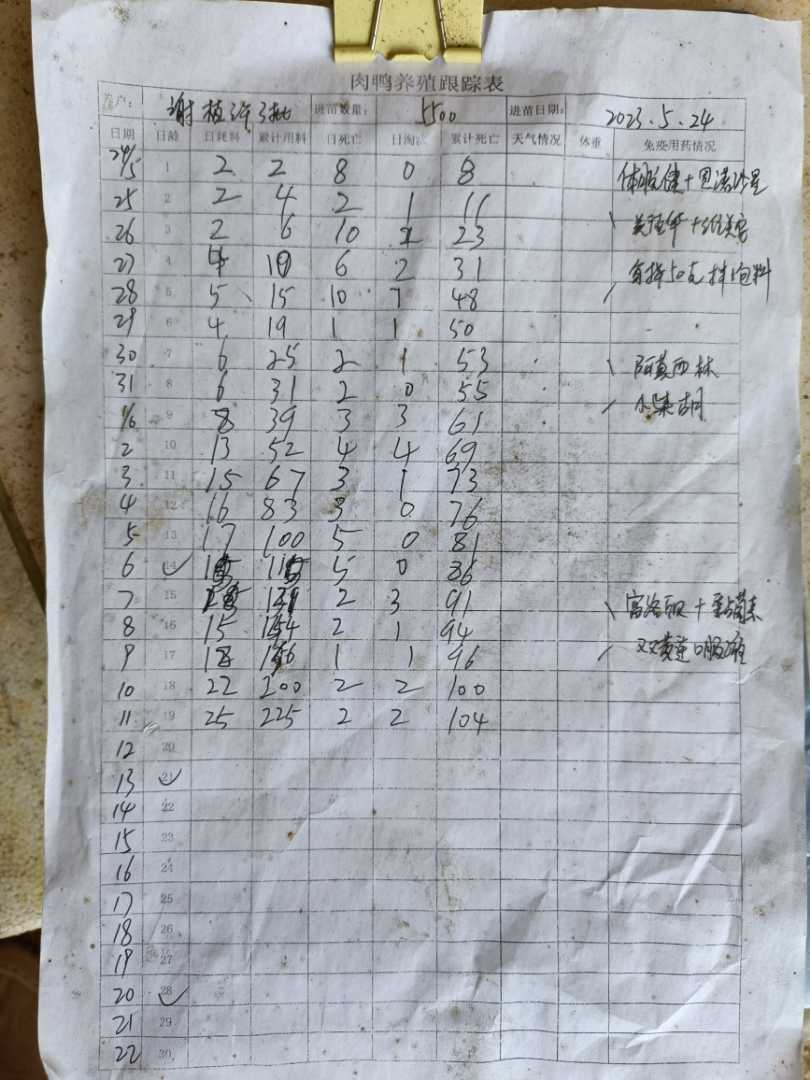 肉鸭养殖跟踪表
养户: 谢植许3批 进苗数量: 5500 进苗日期: 2023.5.24
日期 日龄 日耗料 累计用料 日死亡 日淘汰 累计死亡 天气情况 体重 免疫用药情况
24/5 1 2 2 8 0 8
25 2 2 4 2 1 11
26 3 2 6 10 2 23
27 4 4 10 6 2 31 每择50克拌1包料
28 5 5 15 10 7 48
29 6 4 19 1 1 50
30 7 6 25 2 1 53 阿莫西林
31 8 6 31 2 0 55 小柴胡
1/6 9 8 39 3 3 61
2 10 13 52 4 4 69
3 11 15 67 3 1 73
4 12 16 83 3 0 76
5 13 17 100 5 0 81
6 14 ✓ 15 115 5 0 86
7 15 2 3 91
8 16 15 154 2 1 94
9 17 1 1 96 双黄连口服液
10 18 22 200 2 2 100
11 19 25 225 2 2 104
12 20
13 21 ✓
14 22
15 23
16 24
17 25
18 26
19 27
20 28 ✓
21 29
22 30